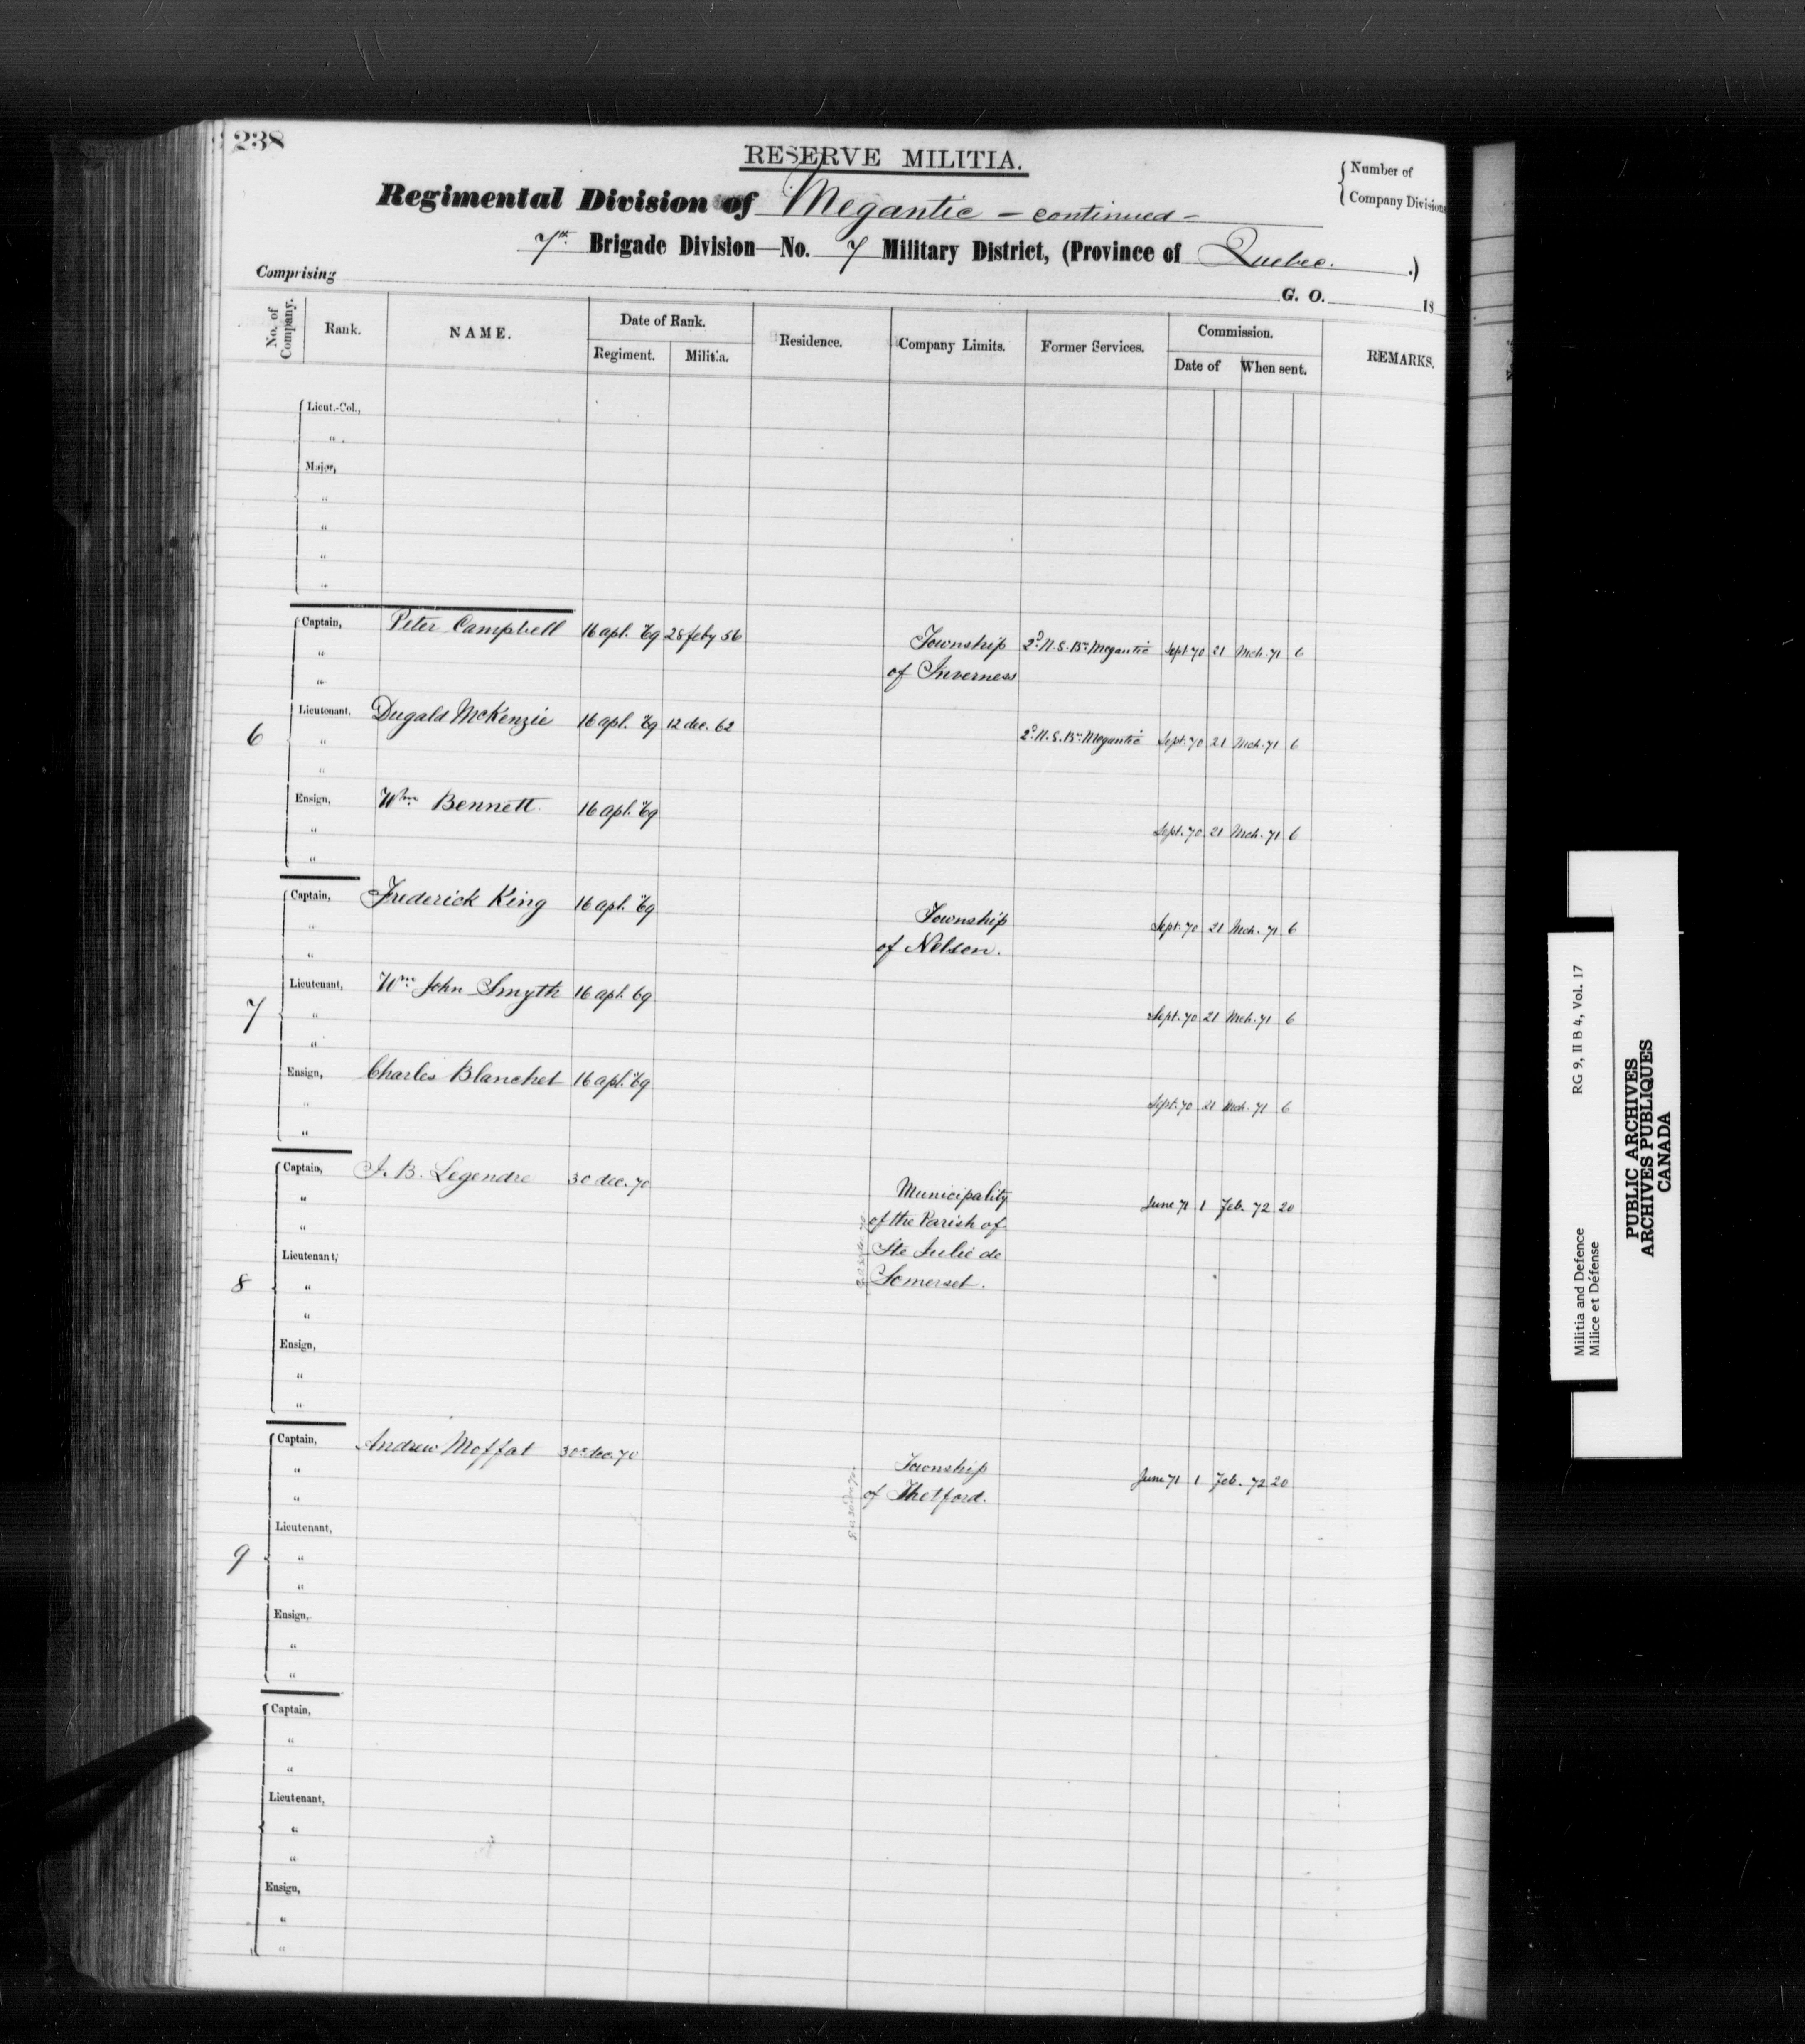 238
RESERVE MILITIA.
Regimental Division of Megantic - continued -
{ Number of
{ Company Divisions
7th Brigade Division—No. 7 Military District, (Province of Quebec. .)
Comprising
G. O. 18
No. of Company. Rank. NAME. Date of Rank. Residence. Company Limits. Former Services. Commission. REMARKS.
Regiment. Militia. Date of When sent.
Lieut.-Col.,
"
Major,
"
"
"
"
Captain, Peter Campbell 16 apl. 69 28 feby 56 Township 2d N.S. Bn. Megantic Sept 70 21 Mch. 71 6
" of Inverness
"
Lieutenant, Dugald McKenzie 16 apl. 69 12 dec. 62 2d N.S. Bn. Megantic Sept. 70 21 Mch. 71 6
6 "
"
Ensign, Wm Bennett 16 apl. 69 Sept. 70 21 Mch. 71 6
"
"
Captain, Frederick King 16 apl. 69 Township Sept. 70 21 Mch. 71 6
" of Nelson.
"
Lieutenant, Wm John Smyth 16 apl. 69 Sept. 70 21 Mch. 71 6
7 "
"
Ensign, Charles Blanchet 16 apl. 69 Sept. 70 21 Mch. 71 6
"
"
Captain, J. B. Legendre 30 dec. 70 Municipality June 71 1 Feb. 72 20
" of the Parish of
" Ste Julie de
Lieutenant, Somerset.
8 "
"
Ensign,
"
"
Captain, Andrew Moffat 30 dec. 70 Township June 71 1 Feb. 72 20
" of Thetford.
"
Lieutenant,
9 "
"
Ensign,
"
"
Captain,
"
"
Lieutenant,
"
"
Ensign,
"
"
Militia and Defence RG 9, II B 4, Vol. 17
Milice et Défense
PUBLIC ARCHIVES
ARCHIVES PUBLIQUES
CANADA